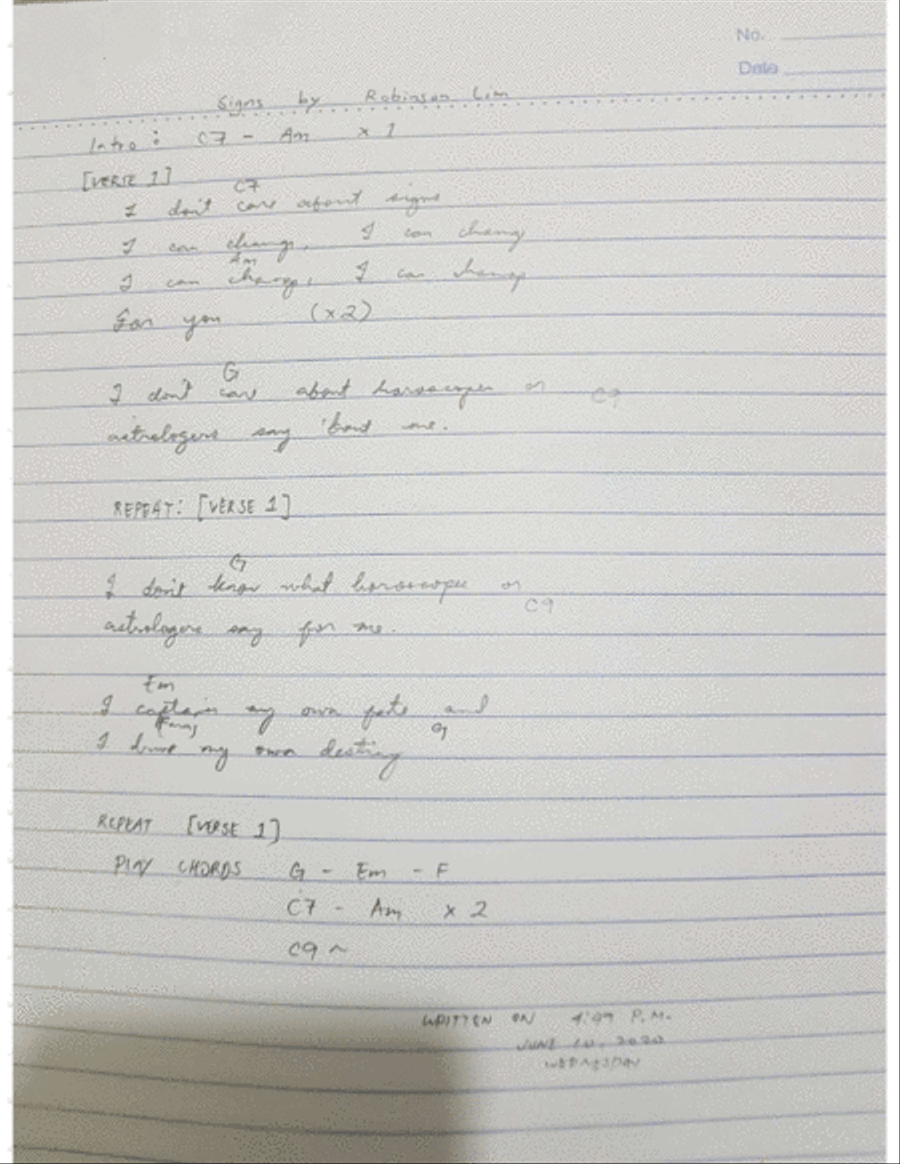 No.
Date
Signs by Robinson Lim
Intro: C7 - Am x 1
[VERSE 1]
C7
I don't care about signs
I can change, I can change
Am
I can change, I can change
For you (x2)
G
I don't care about horoscopes or
C9
astrologers say 'bout me.
REPEAT: [VERSE 1]
G
I don't know what horoscopes or
C9
astrologers say for me.
Em
I captain my own fate and
Fmaj G
I drive my own destiny
REPEAT [VERSE 1]
PLAY CHORDS G - Em - F
C7 - Am x 2
C9 ~
WRITTEN ON 4:49 P.M.
JUNE 10, 2020
WEDNESDAY